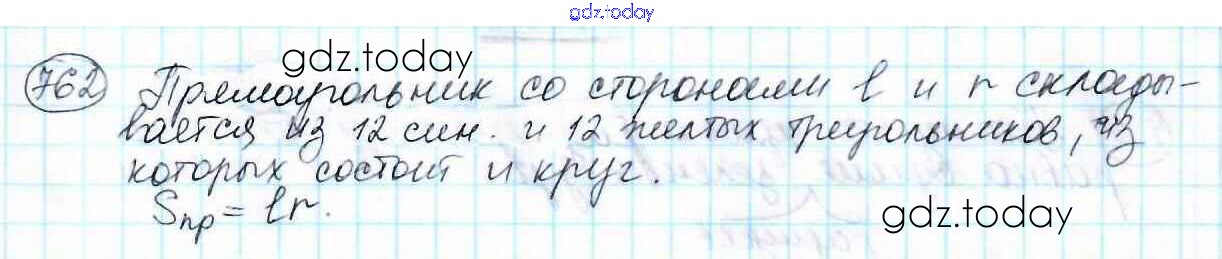 gdz.today
gdz.today
762 Прямоугольник со сторонами l и r складыв-
вается из 12 син. и 12 желтых треугольников, из
которых состоит и круг.
Sпр = lr.
gdz.today